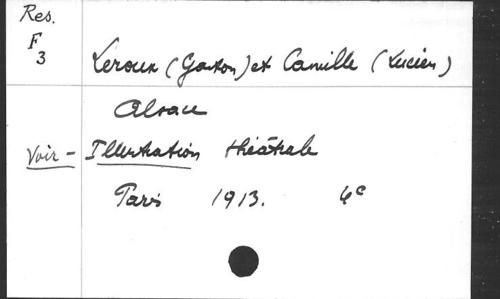 Res.
F
3
Leroux (Gaston) et Camille (Lucien)
Alsace
Voir - Illustration théâtrale
Paris 1913. 4°